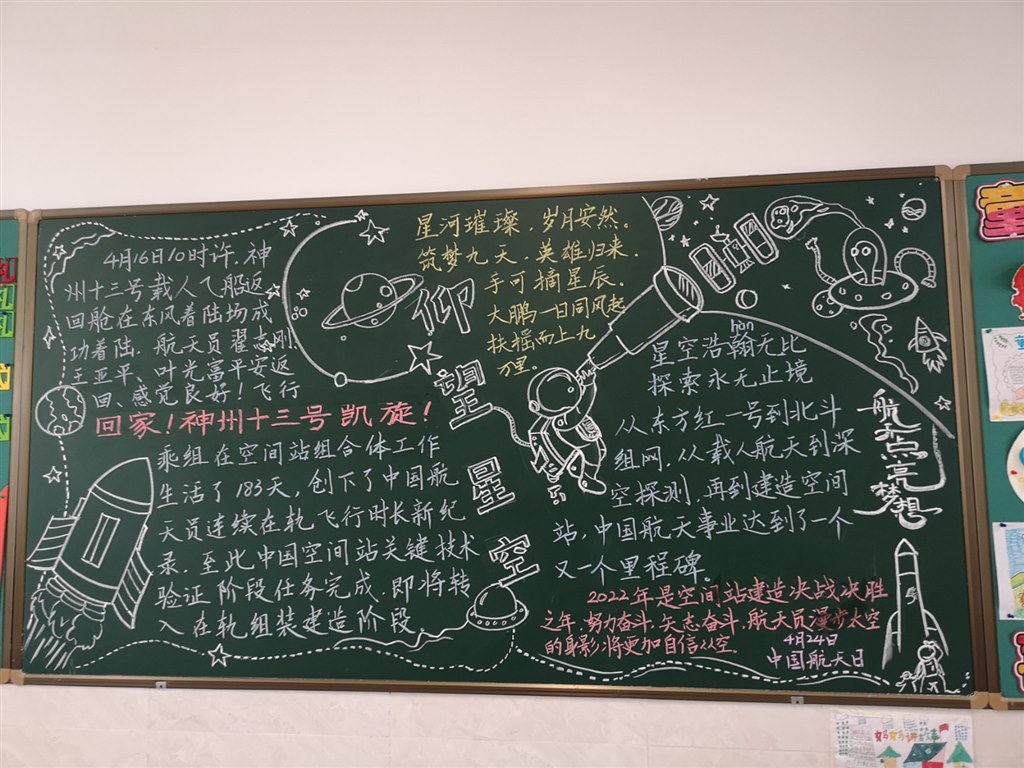 4月16日10时许,神
州十三号载人飞船返
回舱在东风着陆场成
功着陆,航天员翟志刚
王亚平、叶光富平安返
回、感觉良好!飞行
回家!神州十三号凯旋!
乘组在空间站组合体工作
生活了183天,创下了中国航
天员连续在轨飞行时长新纪
录,至此中国空间站关键技术
验证阶段任务完成,即将转
入在轨组装建造阶段。
星河璀璨,岁月安然。
筑梦九天,英雄归来.
手可摘星辰.
大鹏一日同风起
扶摇而上九
万里。
仰
望
星
空
hàn
星空浩翰无比
探索永无止境
从东方红一号到北斗
组网,从载人航天到深
空探测,再到建造空间
站,中国航天事业达到了一个
又一个里程碑。
2022年是空间站建造决战决胜
之年,努力奋斗,矢志奋斗,航天员漫步太空
的身影将更加自信从空.
4月24日
中国航天日
航天点亮
梦想